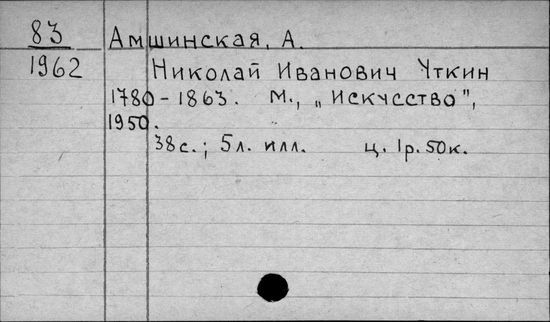 83 Амшинская, А.
1962 Николай Иванович Уткин
1780-1863. М., „Искусство",
1950.
38с.; 5л. илл. ц. 1р. 50к.